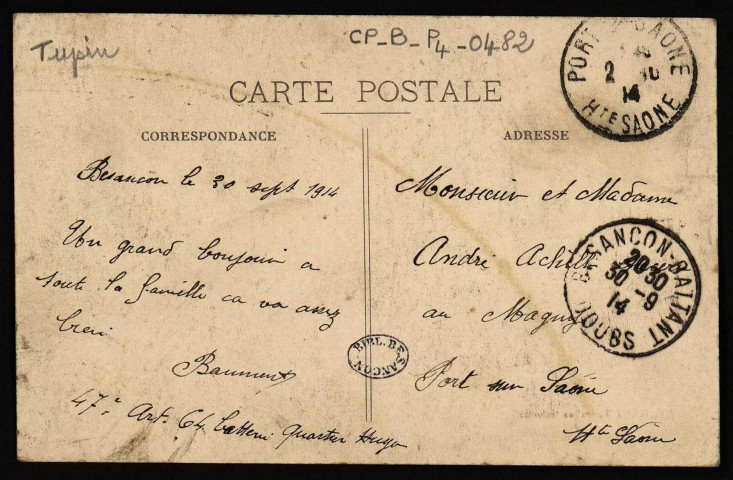 Tupin
CP_B_P4_0482
CARTE POSTALE
CORRESPONDANCE
ADRESSE
PORT SAONE
2 10
14
HTE SAONE
Besancon le 30 sept 1914
Un grand boujour a
toute la famille ca va assez
bien
Baumont
47e Art. 64 batterie quartier Hugo
BIBL. BESANCON
Monsieur et Madame
André Achille
au Magny
Port sur Saône
Hte Saone
BESANCON-BATTANT
20 30
30 -9
14
DOUBS